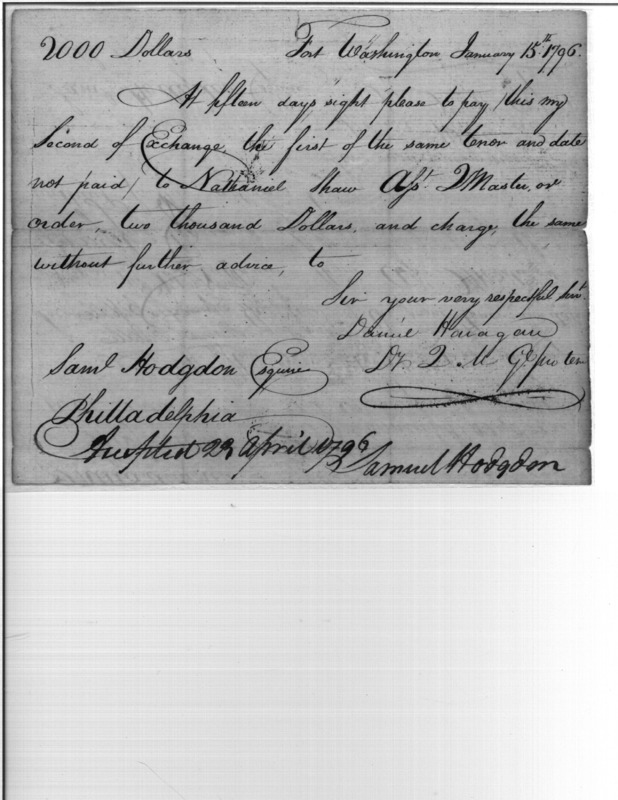 2000 Dollars Fort Washington January 15th 1796.
At fifteen days sight please to pay (this my
Second of Exchange, the first of the same tenor and date
not paid) to Nathaniel Shaw Asst. QMaster, or
order, two thousand Dollars, and charge, the same
without further advice, to
Sir your very respectful Servt.
Daniel
Saml Hodgdon Esquire D. Q M Gl. pro tem
Philladelphia
Accepted 23 April 1796 Samuel Hodgdon